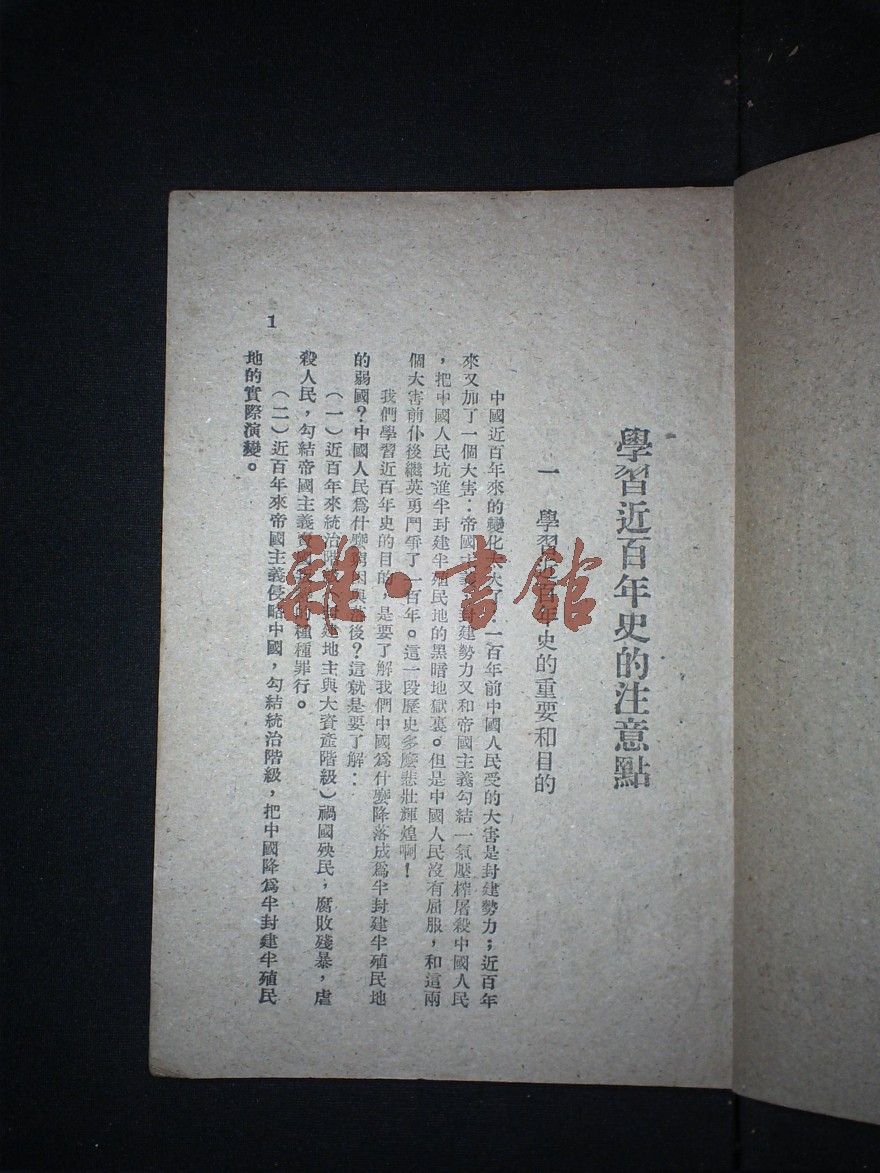 學習近百年史的注意點
一 學習近百年史的重要和目的
中國近百年來的變化太大了：一百年前中國人民受的大害是封建勢力；近百年
來又加了一個大害：帝國主義，封建勢力又和帝國主義勾結一氣壓榨屠殺中國人民
，把中國人民坑進半封建半殖民地的黑暗地獄裏。但是中國人民沒有屈服，和這兩
個大害前仆後繼英勇鬥爭了一百年。這一段歷史多麼悲壯輝煌啊！
我們學習近百年史的目的，是要了解我們中國爲什麼降落成爲半封建半殖民地
的弱國？中國人民爲什麼窮困與落後？這就是要了解：
（一）近百年來統治階級（封建地主與大資產階級）禍國殃民；腐敗殘暴，虐
殺人民，勾結帝國主義賣國的種種罪行。
（二）近百年來帝國主義侵略中國，勾結統治階級，把中國降爲半封建半殖民
地的實際演變。
1
雜·書館